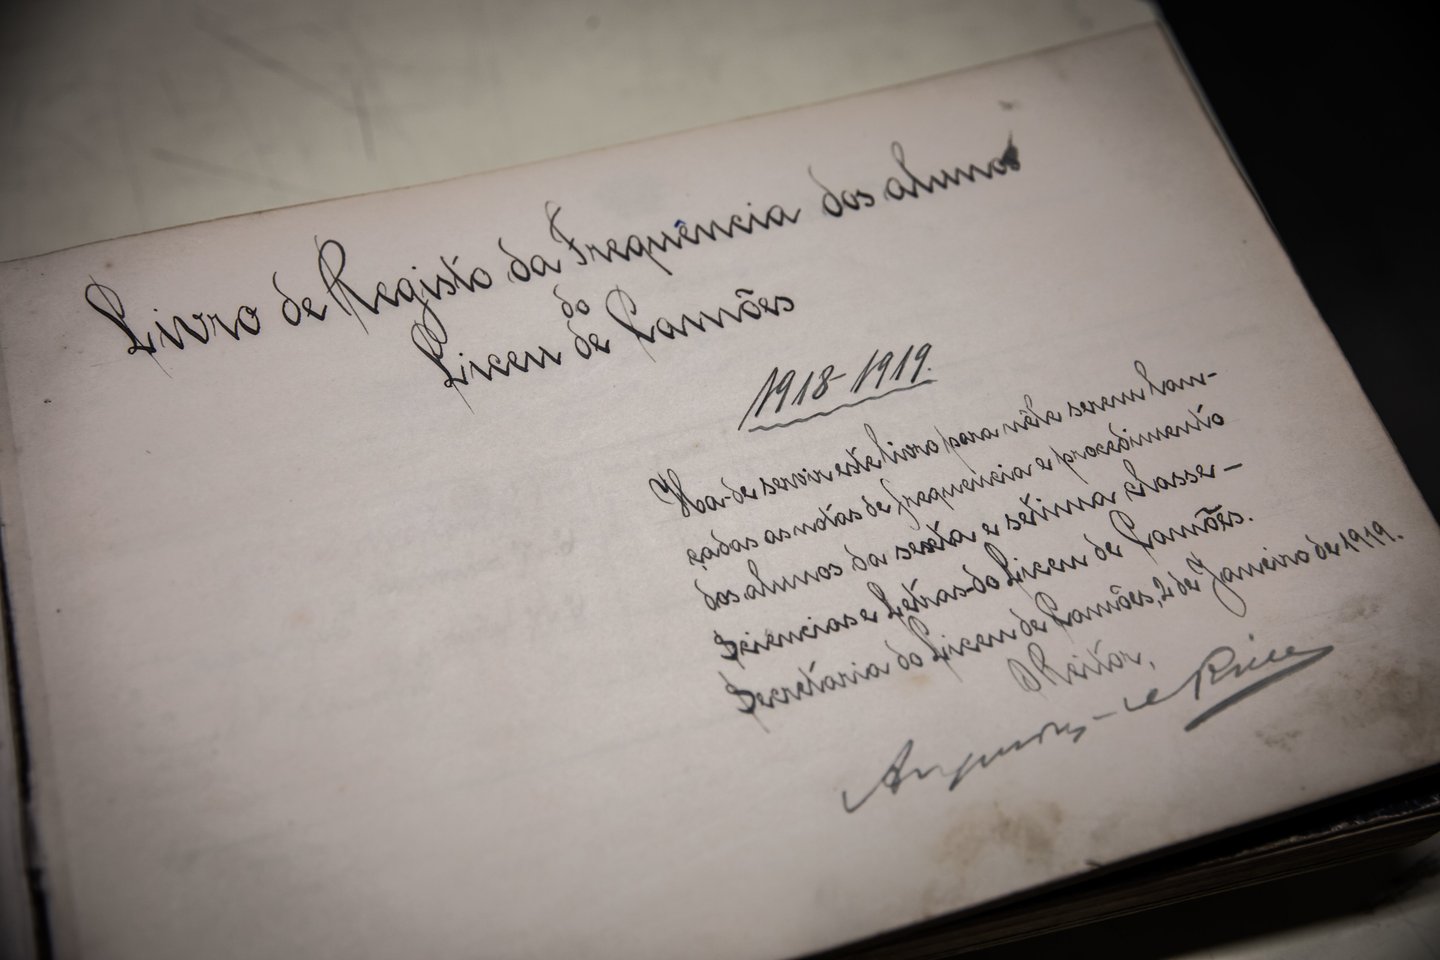 Livro de Registo da Frequência dos alunos
do
Liceu de Camões
1918-1919.
Ha-de servir este livro para nêle serem lan-
çadas as notas de frequencia e procedimento
dos alunos da sexta e setima classe-
Sciencias e Letras-do Liceu de Camões.
Secretaria do Liceu de Camões, 2 de Janeiro de 1919.
O Reitor,